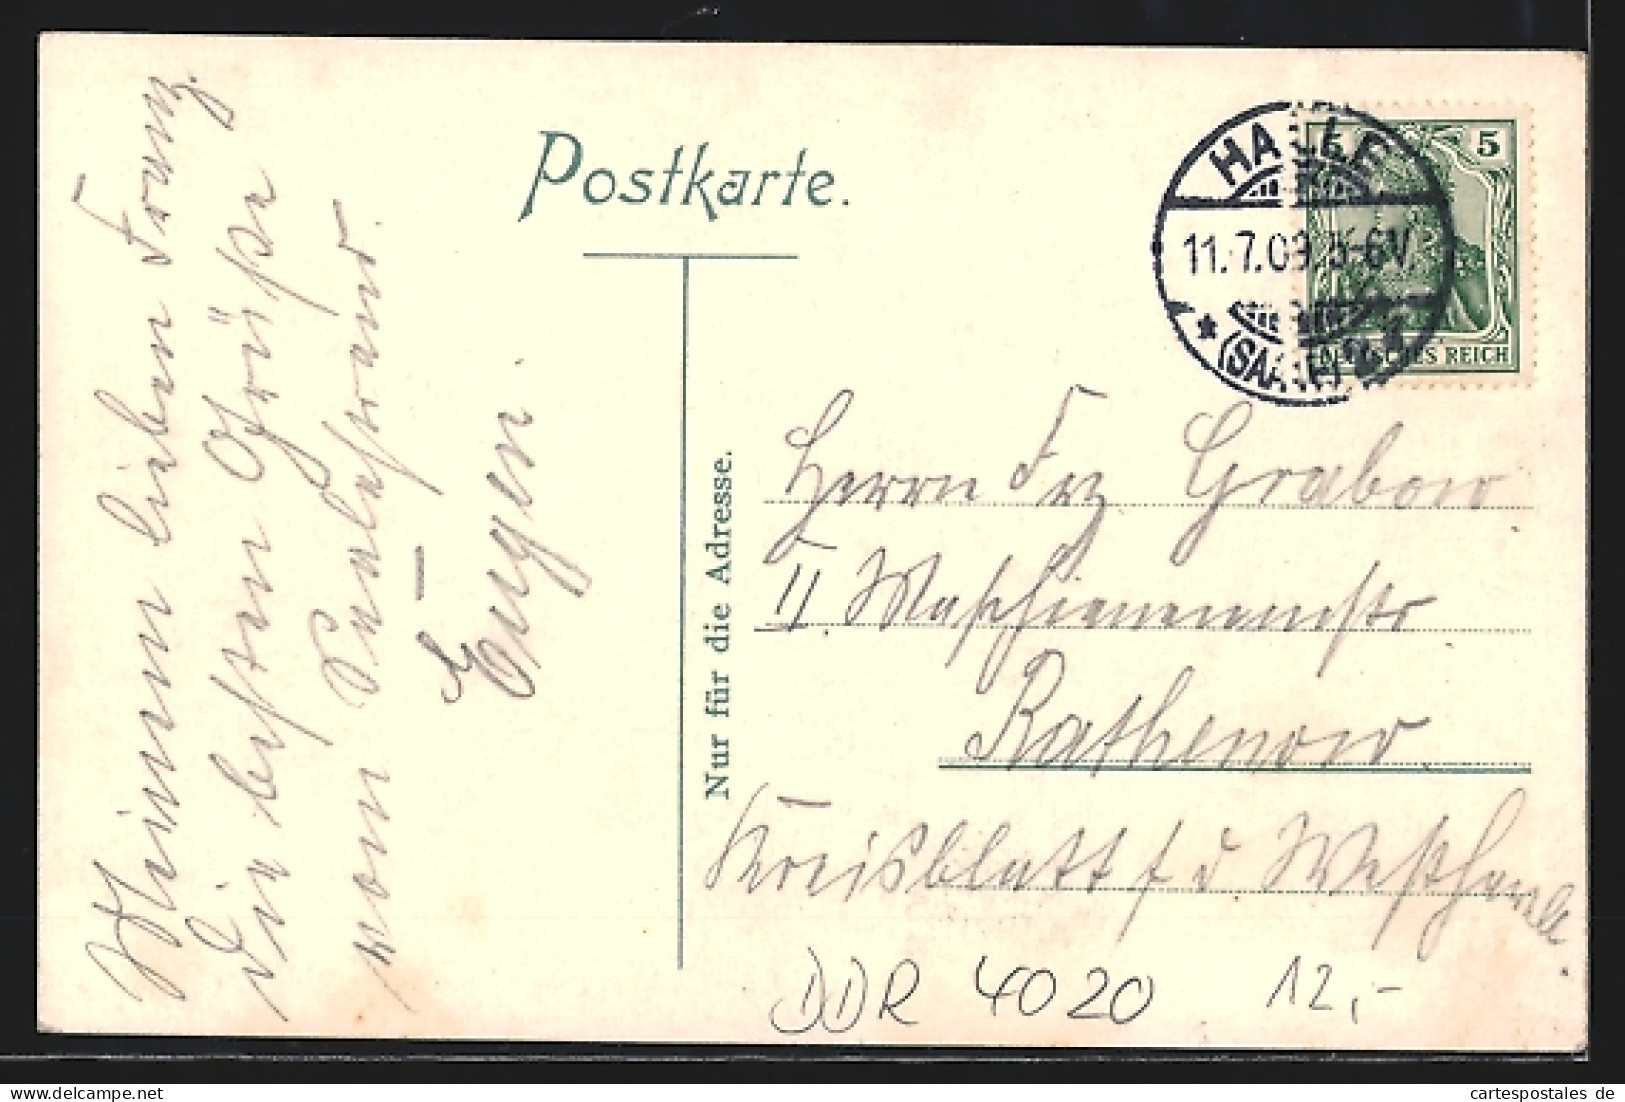 Postkarte.
5 5
DEUTSCHES REICH
HALLE
11.7.09. 5-6V.
* (SAALE)
Nur für die Adresse.
Meinem lieben Franz
die besten Grüße
vom
Eugen
Herrn Frz Grabow
II.
Rathenow
Kreisblatt f d
DDR 4020 12,-
cartespostales de